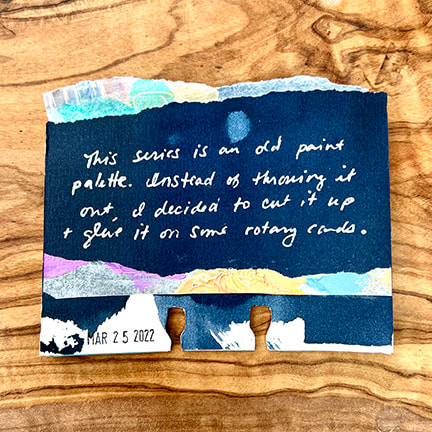 This series is an old paint
palette. Instead of throwing it
out, I decided to cut it up
+ glue it on some rotary cards.
MAR 25 2022